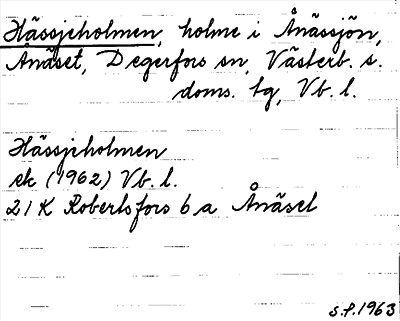 Hässjeholmen, holme i Ånässjön,
Ånäset, Degerfors sn, Västerb. s.
doms. tg, Vb. l.
Hässjeholmen
ek (1962) Vb. l.
21 K Robertsfors 6 a Ånäset
S.F. 1963